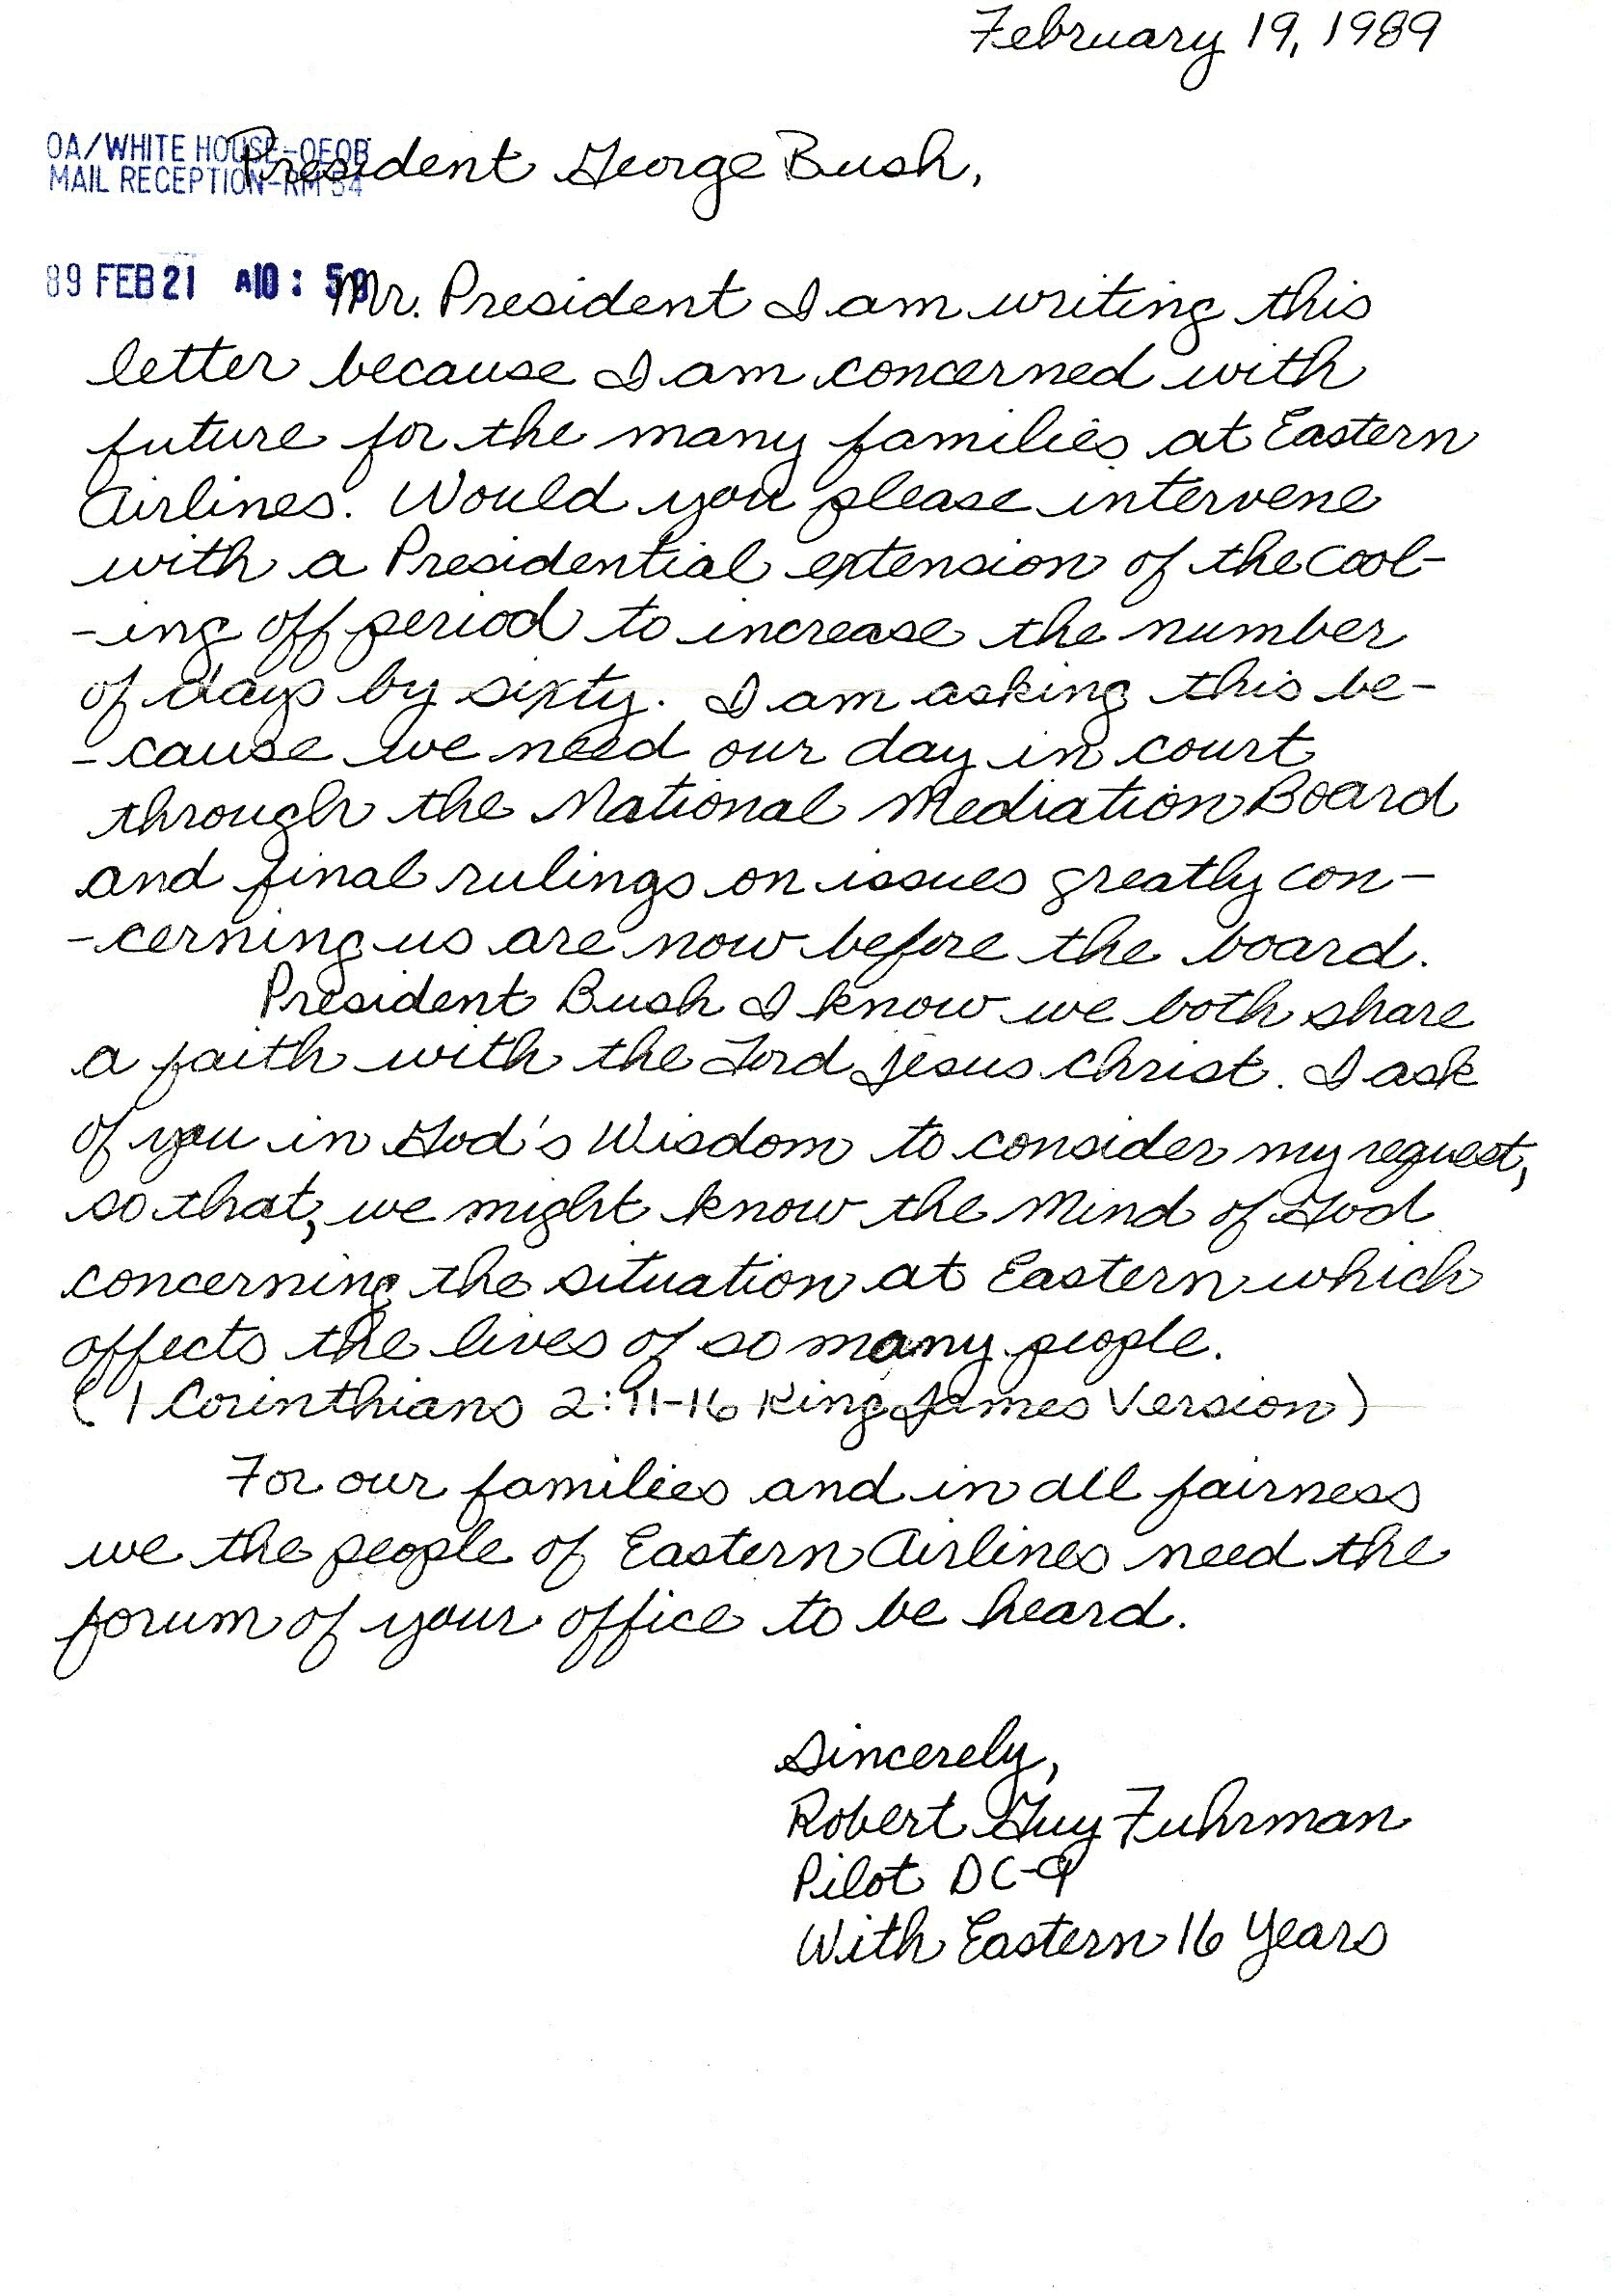 February 19, 1989
OA/WHITE HOUSE-OEOB
MAIL RECEPTION-RM 54
President George Bush,
89 FEB 21 A10:
Mr. President I am writing this
letter because I am concerned with
future for the many families at Eastern
Airlines. Would you please intervene
with a Presidential extension of the cool-
-ing off period to increase the number
of days by sixty. I am asking this be-
-cause we need our day in court
through the National Mediation Board
and final rulings on issues greatly con-
-cerning us are now before the board.
President Bush I know we both share
a faith with the Lord Jesus Christ. I ask
of you in God's Wisdom to consider my request,
so that, we might know the Mind of God
concerning the situation at Eastern which
affects the lives of so many people.
(1 Corinthians 2:11-16 King James Version)
For our families and in all fairness
we the people of Eastern Airlines need the
forum of your office to be heard.
Sincerely,
Robert Guy Fuhrman
Pilot DC-9
With Eastern 16 Years